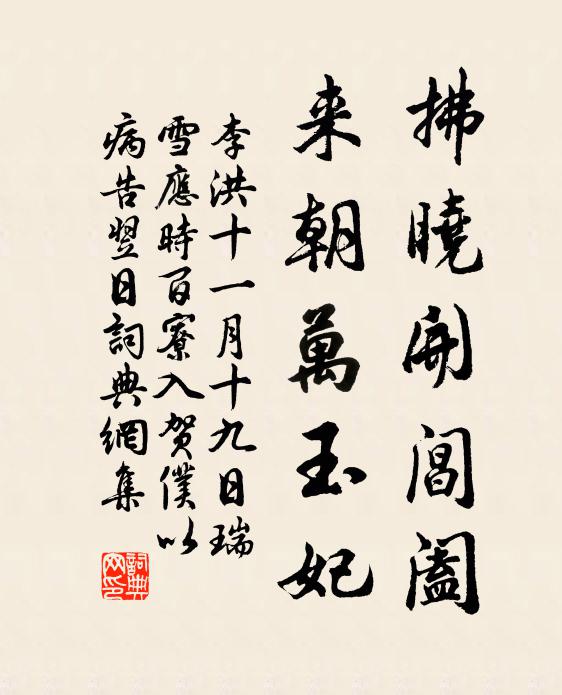 拂曉開閶闔
来朝萬玉妃
李洪十一月十九日瑞
雪應時百寮入贺僕以
病告翌日詞典網集
詞典
网印